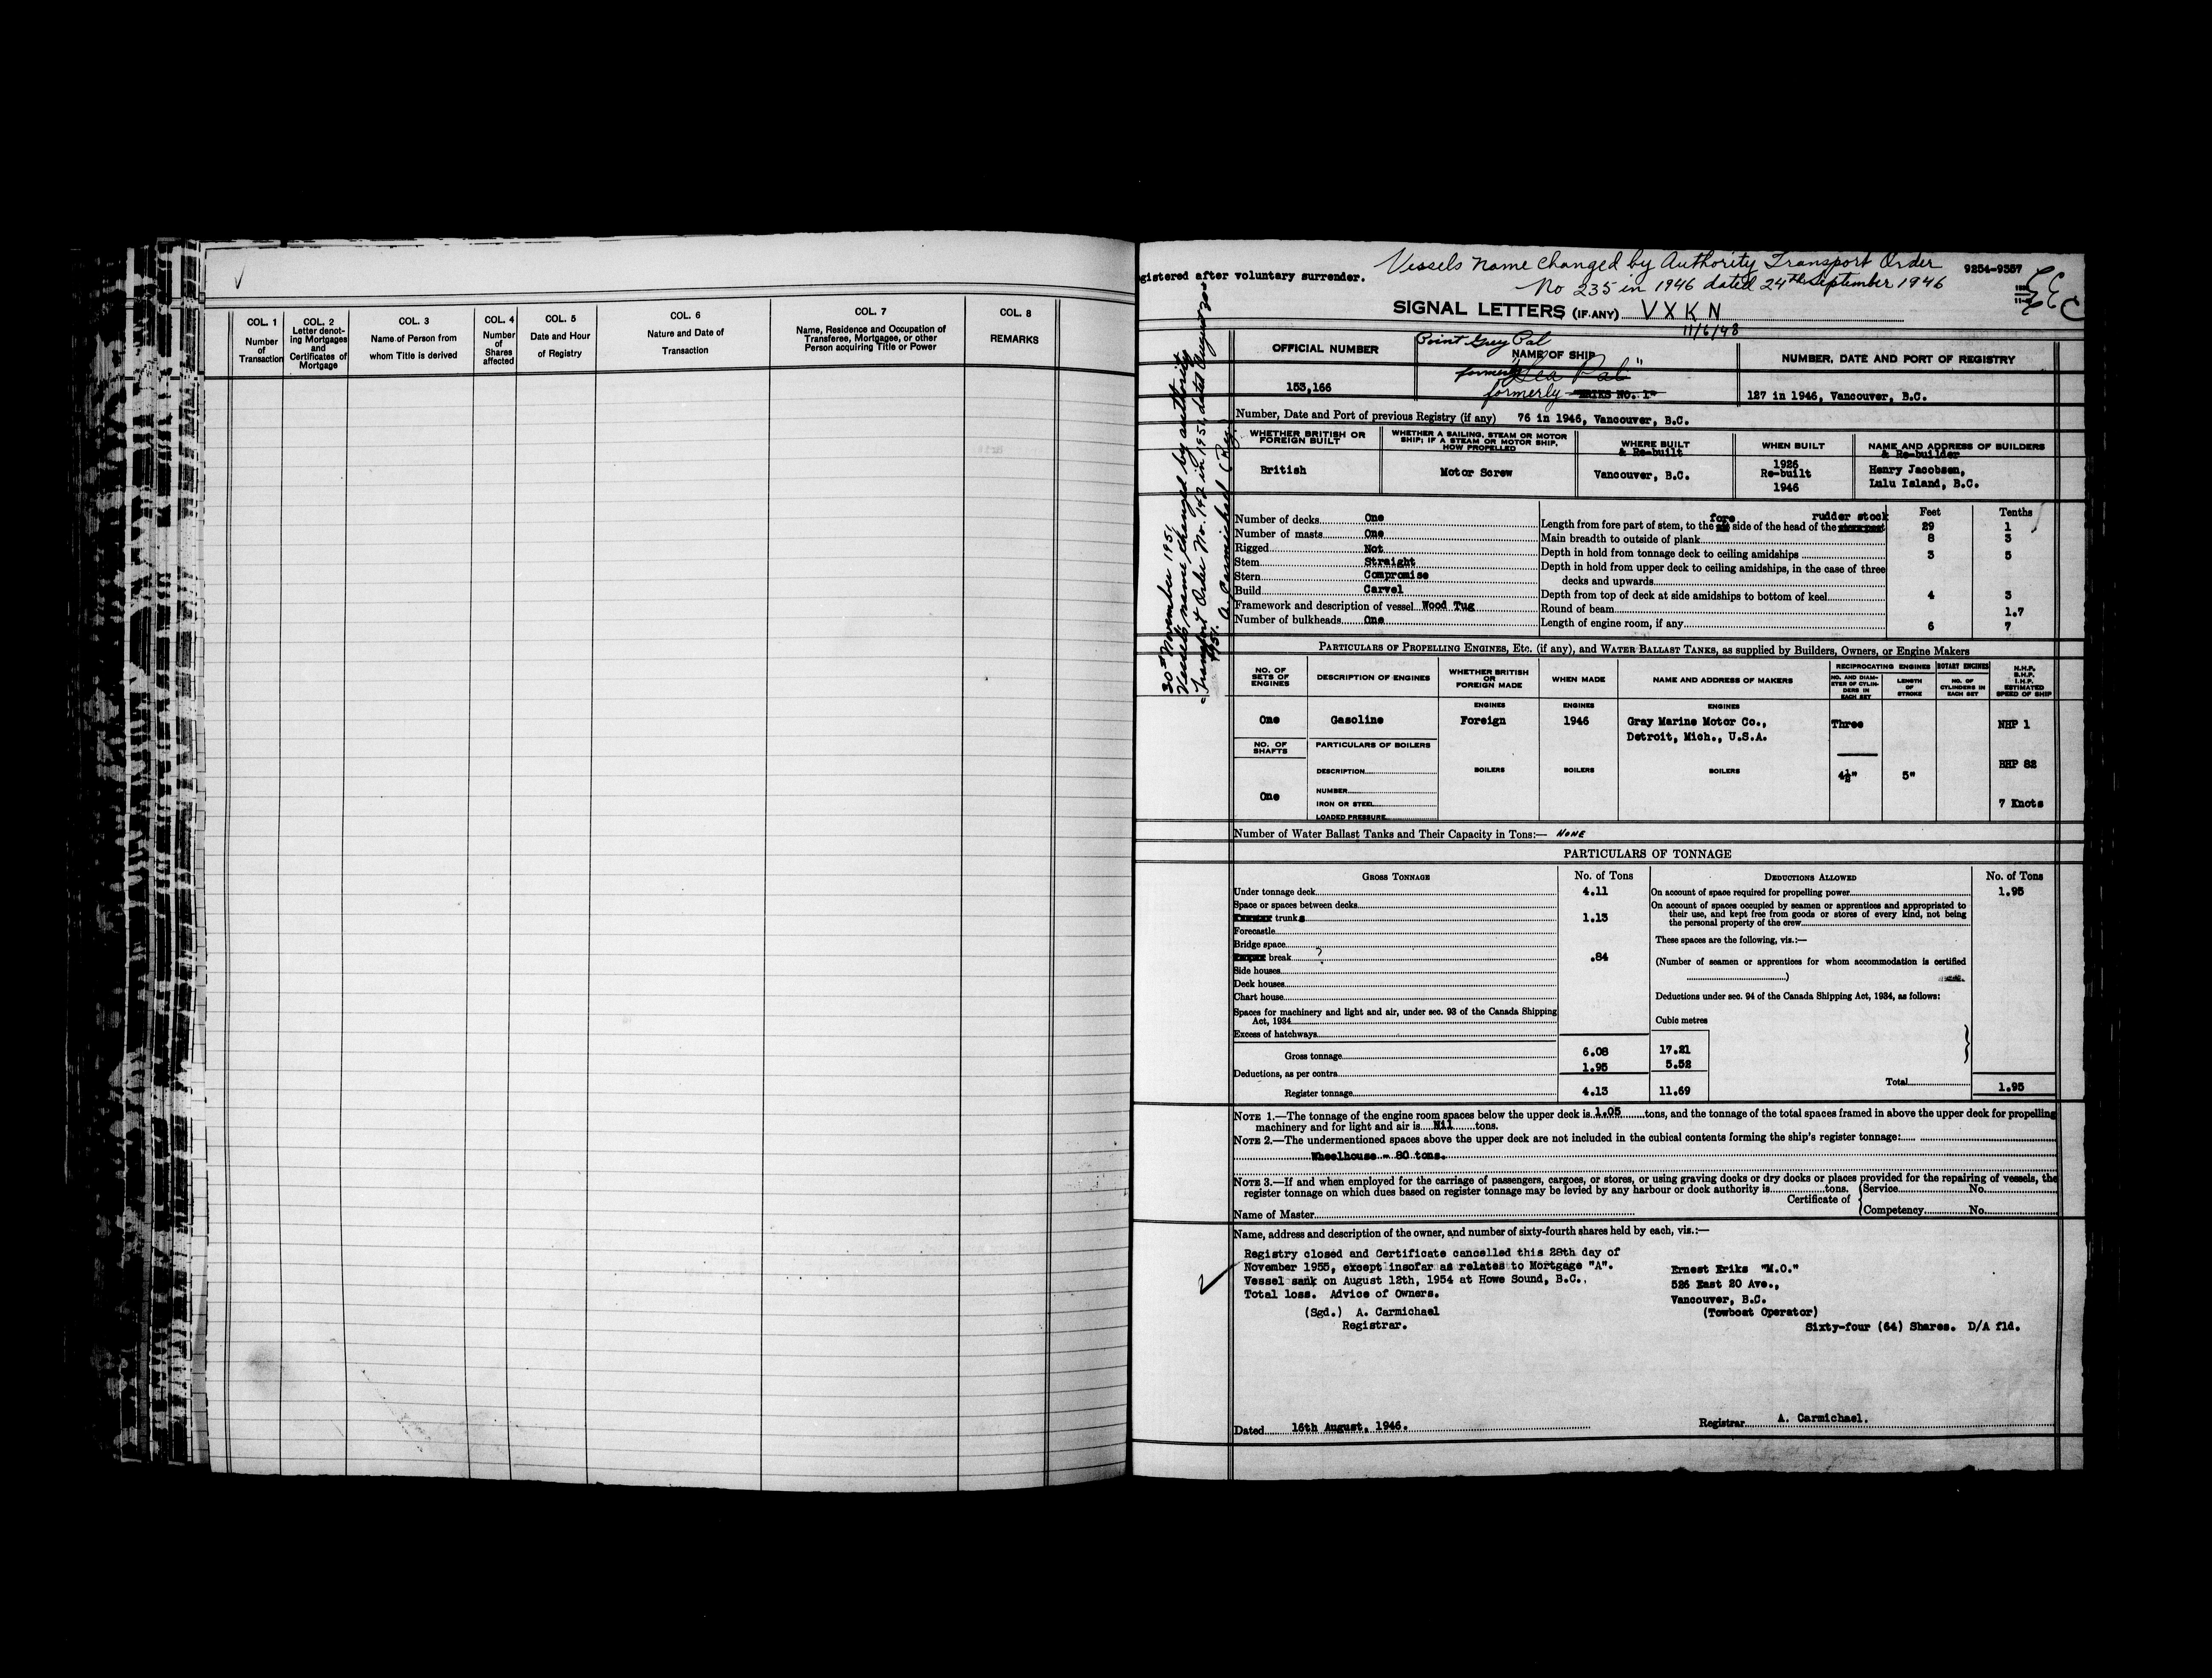 COL. 1
Number
of
Transaction
COL. 2
Letter denot-
ing Mortgages
and
Certificates of
Mortgage
COL. 3
Name of Person from
whom Title is derived
COL. 4
Number
of
Shares
affected
COL. 5
Date and Hour
of Registry
COL. 6
Nature and Date of
Transaction
COL. 7
Name, Residence and Occupation of
Transferee, Mortgagee, or other
Person acquiring Title or Power
COL. 8
REMARKS
gistered after voluntary surrender.
Vessels name changed by Authority Transport Order
No 235 in 1946 dated 24th September 1946
9254-9357
SIGNAL LETTERS (IF ANY) VXKN
11/6/48
30th November 1951
Vessel's name changed by authority
Transport Order No. 142 in 1951, dated August 30th
1951. A. Carmichael (Reg.
OFFICIAL NUMBER
153,166
Point Grey Pal
NAME OF SHIP
formerly "Sea Pal"
formerly "ERIKS NO. 1"
NUMBER, DATE AND PORT OF REGISTRY
127 in 1946, Vancouver, B.C.
Number, Date and Port of previous Registry (if any) 76 in 1946, Vancouver, B.C.
WHETHER BRITISH OR
FOREIGN BUILT
British
WHETHER A SAILING, STEAM OR MOTOR
SHIP; IF A STEAM OR MOTOR SHIP,
HOW PROPELLED
Motor Screw
WHERE BUILT
& Re-built
Vancouver, B.C.
WHEN BUILT
1926
Re-built
1946
NAME AND ADDRESS OF BUILDERS
& Re-builder
Henry Jacobsen,
Lulu Island, B.C.
Number of decks One
Number of masts One
Rigged Not
Stem Straight
Stern Compromise
Build Carvel
Framework and description of vessel Wood Tug
Number of bulkheads One
Feet Tenths
Length from fore part of stem, to the fore side of the head of the rudder stock 29 1
Main breadth to outside of plank 8 3
Depth in hold from tonnage deck to ceiling amidships 3 5
Depth in hold from upper deck to ceiling amidships, in the case of three
decks and upwards
Depth from top of deck at side amidships to bottom of keel 4 3
Round of beam 1.7
Length of engine room, if any 6 7
PARTICULARS OF PROPELLING ENGINES, ETC. (if any), and WATER BALLAST TANKS, as supplied by Builders, Owners, or Engine Makers
NO. OF
SETS OF
ENGINES
One
NO. OF
SHAFTS
One
DESCRIPTION OF ENGINES
Gasoline
PARTICULARS OF BOILERS
DESCRIPTION
NUMBER
IRON OR STEEL
LOADED PRESSURE
WHETHER BRITISH
OR
FOREIGN MADE
ENGINES
Foreign
BOILERS
WHEN MADE
ENGINES
1946
BOILERS
NAME AND ADDRESS OF MAKERS
ENGINES
Gray Marine Motor Co.,
Detroit, Mich., U.S.A.
BOILERS
RECIPROCATING ENGINES
NO. AND DIAM-
ETER OF CYLIN-
DERS IN
EACH SET
Three
4½"
LENGTH
OF
STROKE
5"
ROTARY ENGINES
NO. OF
CYLINDERS IN
EACH SET
N.H.P.
B.H.P.
I.H.P.
ESTIMATED
SPEED OF SHIP
NHP 1
BHP 82
7 Knots
Number of Water Ballast Tanks and Their Capacity in Tons:— NONE
PARTICULARS OF TONNAGE
GROSS TONNAGE No. of Tons
Under tonnage deck 4.11
Space or spaces between decks
trunks 1.13
Forecastle
Bridge space
break ? .84
Side houses
Deck houses
Chart house
Spaces for machinery and light and air, under sec. 93 of the Canada Shipping
Act, 1934
Excess of hatchways
Gross tonnage 6.08 17.21
Deductions, as per contra 1.95 5.52
Register tonnage 4.13 11.69
DEDUCTIONS ALLOWED No. of Tons
On account of space required for propelling power 1.95
On account of spaces occupied by seamen or apprentices and appropriated to
their use, and kept free from goods or stores of every kind, not being
the personal property of the crew
These spaces are the following, viz.:—
(Number of seamen or apprentices for whom accommodation is certified
)
Deductions under sec. 94 of the Canada Shipping Act, 1934, as follows:
Cubic metres
Total 1.95
NOTE 1.—The tonnage of the engine room spaces below the upper deck is 1.05 tons, and the tonnage of the total spaces framed in above the upper deck for propelling
machinery and for light and air is Nil tons.
NOTE 2.—The undermentioned spaces above the upper deck are not included in the cubical contents forming the ship's register tonnage:
Wheelhouse - 80 tons.
NOTE 3.—If and when employed for the carriage of passengers, cargoes, or stores, or using graving docks or dry docks or places provided for the repairing of vessels, the
register tonnage on which dues based on register tonnage may be levied by any harbour or dock authority is tons.
Certificate of
Service No.
Competency No.
Name of Master
Name, address and description of the owner, and number of sixty-fourth shares held by each, viz.:—
Registry closed and Certificate cancelled this 28th day of
November 1955, except insofar as relates to Mortgage "A".
Vessel sank on August 12th, 1954 at Howe Sound, B.C.
Total loss. Advice of Owners.
(Sgd.) A. Carmichael
Registrar.
Ernest Eriks "M.O."
526 East 20 Ave.,
Vancouver, B.C.
(Towboat Operator)
Sixty-four (64) Shares. D/A fld.
Dated 16th August, 1946.
Registrar A. Carmichael.